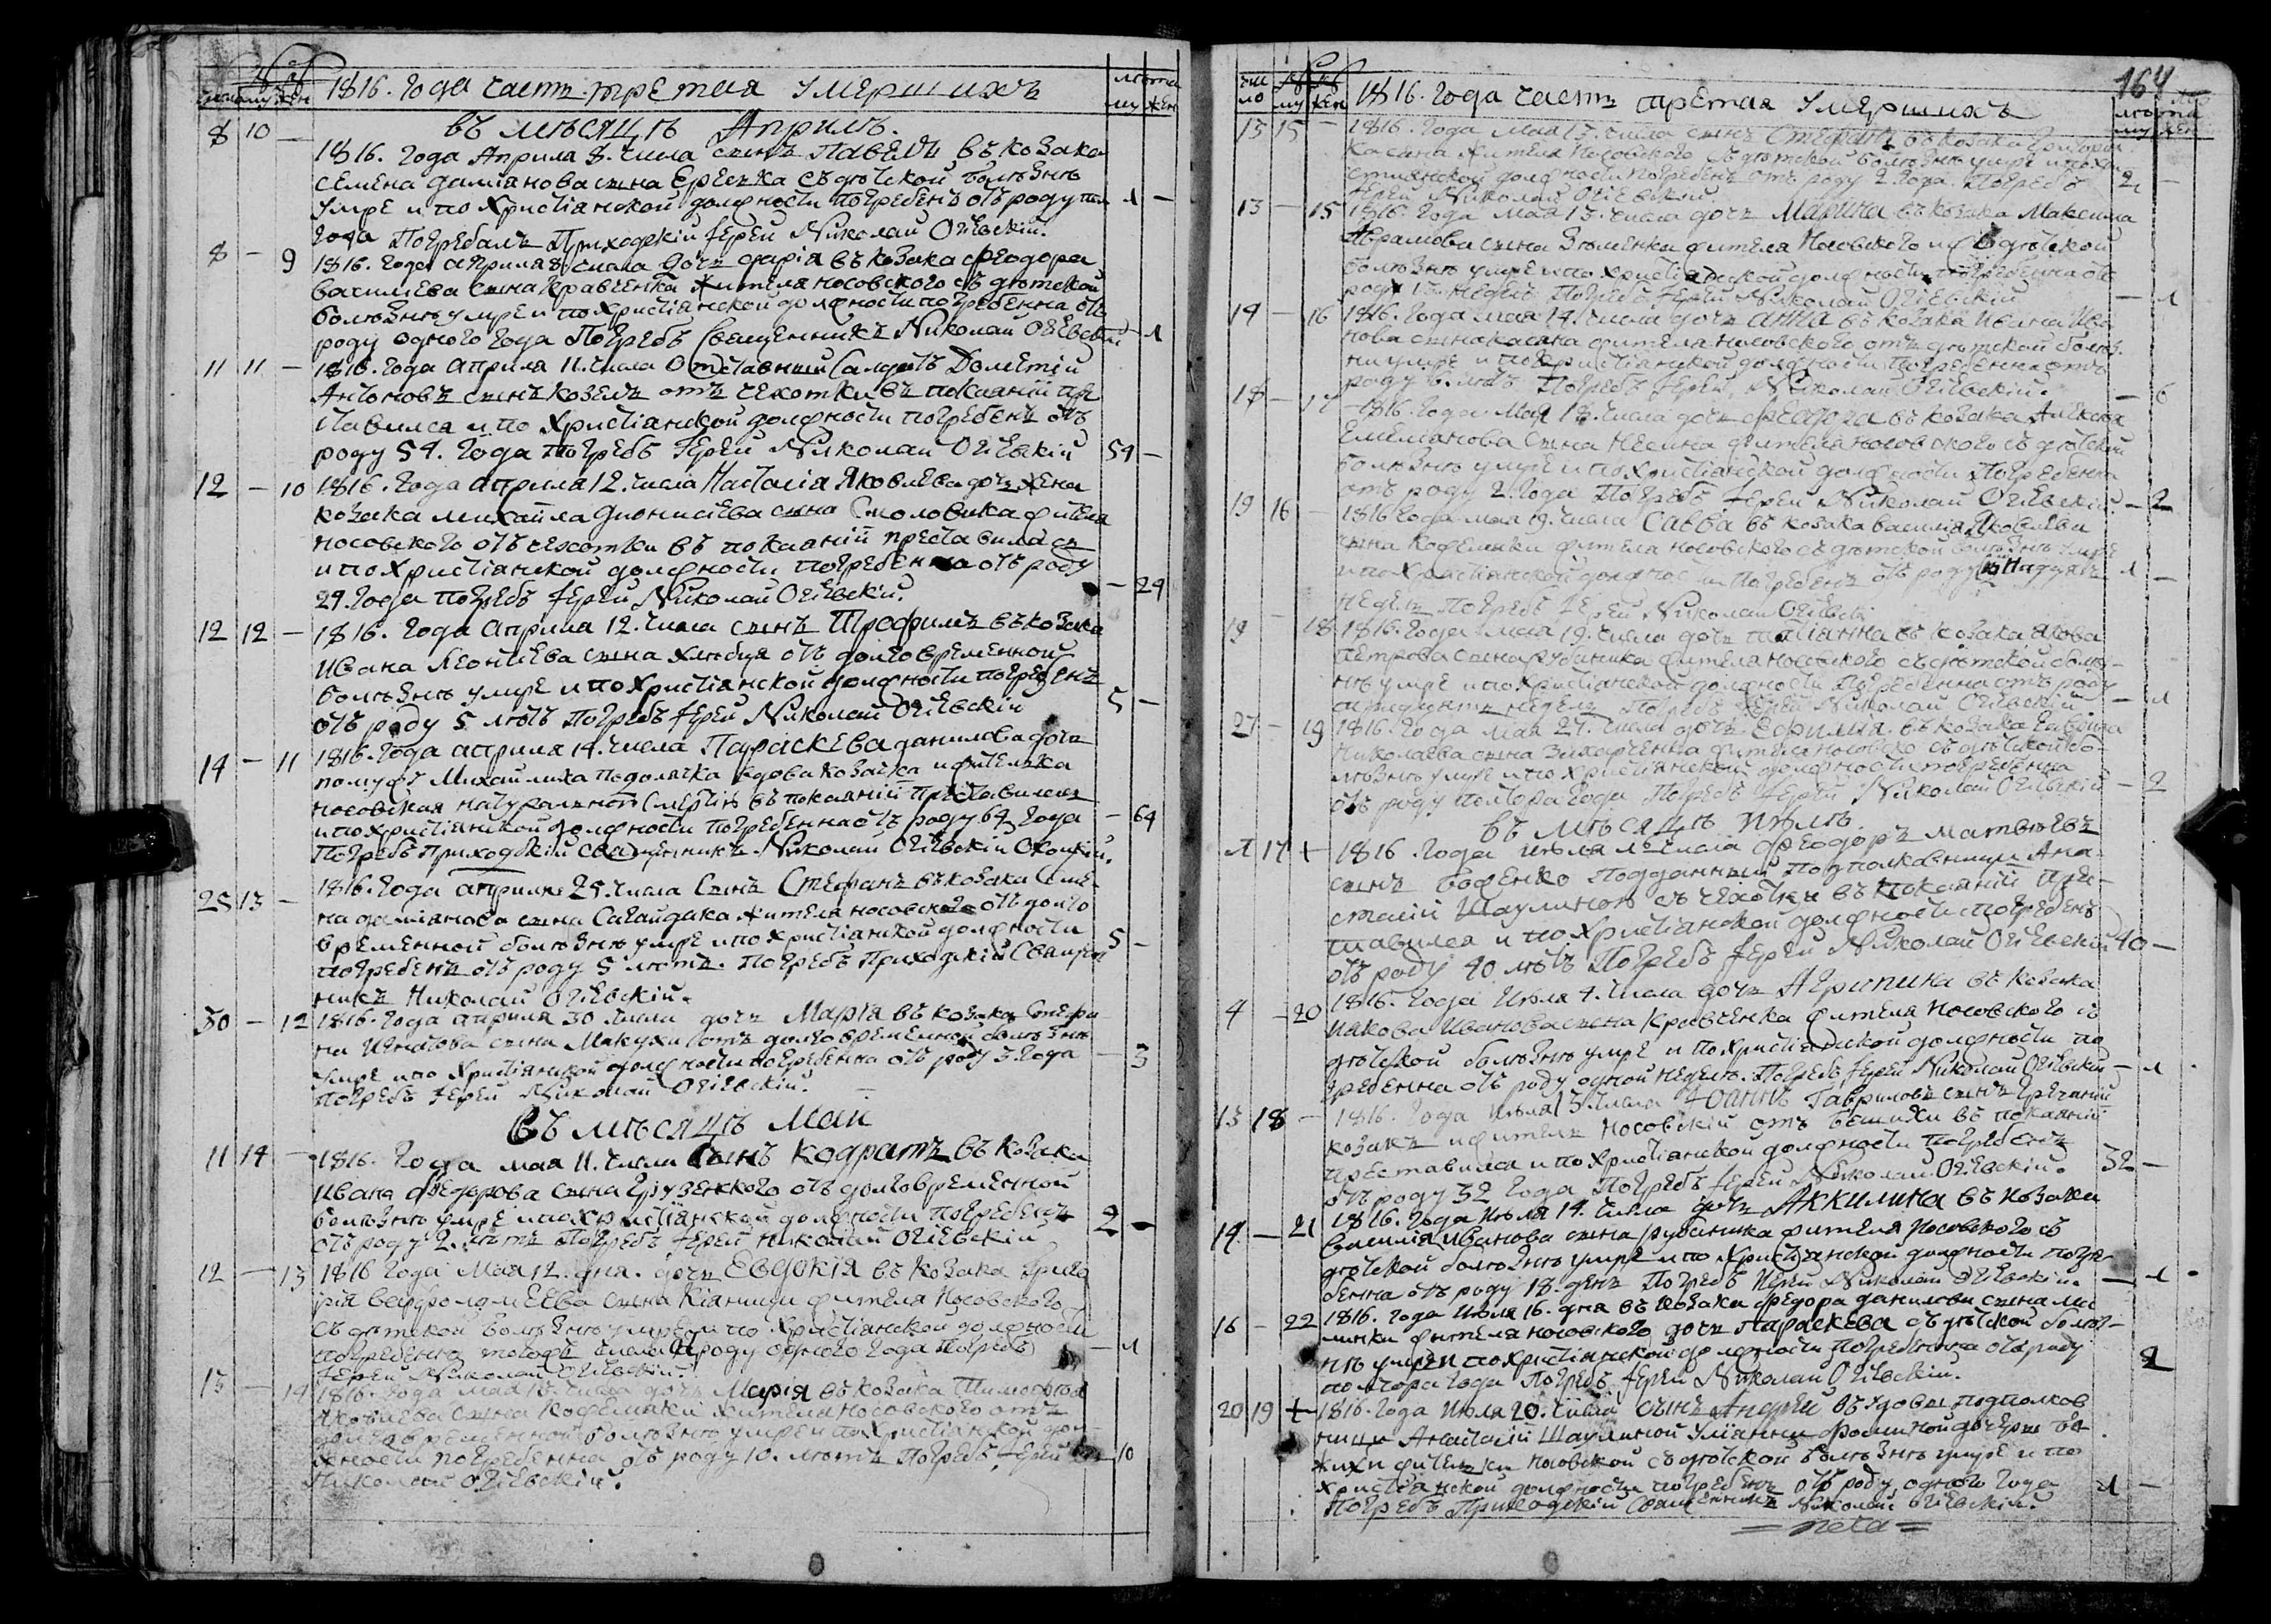 1816. Года часть третая Умершихъ
лѣта
му жен
въ мѣсяцѣ Априлѣ.
8 10 — 1816. Года Априла 8. числа сынъ Павелъ въ козака
Семена Даміанова сына съ дѣтской болѣзнѣ
умре и по Христіанской должности погребенъ отъ роду 1 —
года Погребалъ Приходжкій Іерей Николай Огіевскій.
8 — 9 1816. Года априля 8 числа дочъ Дарія въ козака Феодора
Василиева сына Кравченка жителя носовского съ дѣтской
болѣзнѣ умре и по христіянской должности погребенна отъ
роду одного года Погребъ Священникъ Николай Огіевскій — 1
11 11 — 1816. Года априля 11. числа Отставный Салдатъ Дометій
Антоновъ сынъ Козелъ отъ чехотки въ покаяніи пре
ставился и по Христіанской должности погребенъ отъ
роду 54. Года погребъ Іерей Николай Огіевскій 54 —
12 — 10 1816. Года априля 12. числа Настасія Яковлева дочъ жена
козака Михайла Дионисіева сына жителя
носовского отъ чехотки въ покаяніи преставиласъ
и по Христіанской должности погребенна отъ роду
29. Года погребъ Іерей Николай Огіевскій. — 29
12 12 — 1816. Года Априля 12. числа сынъ Трофимъ въ козака
Ивана Леонтіева сына Хлѣбця отъ долговременной
болѣзнѣ умре и по Христіанской должности погребенъ
отъ роду 5 лѣтъ Погребъ Іерей Николай Огіевскій 5 —
14 — 11 1816. Года априля 14. числа Параскева Данилова дочъ
по мужѣ Михайлиха Подолячка вдова козачка и жителька
носовская натуралною смертію въ покаяніи Преставиласъ
и по христіянской должности погребенна отъ роду 64 Года — 64
Погребъ Приходжкій священникъ Николай Огіевскій
25 13 — 1816. Года априля 25. числа Сынъ Стефанъ въ козака Семе-
на Даміанова сына Сагайдака жителя носовского отъ долго
временной болѣзнѣ умре и по христіянской должности 5 —
погребенъ отъ роду 5 лѣтъ. Погребъ Приходжкій Священ
никъ Николай Огіевскій.
30 — 12 1816. Года априля 30 числа дочъ Марія въ козака Стефа-
на Игнатова сына Макухи отъ долговременной болѣзнѣ
умре и по Христіянской должности погребенна отъ роду 3. Года — 3
погребъ Іерей Николай Огіевскій.
Въ мѣсяцѣ Маи
11 14 — 1816. Года мая 11. числа Сынъ Кодратъ въ козака
Ивана Федорова сына Грузенского отъ долговременной
болѣзнѣ умре и по христіанской должности погребенъ
отъ роду 2. лѣтъ Погребъ Іерей Николай Огіевскій 2 —
12 — 13 1816 Года Мая 12. дня. дочъ Евдокія въ козака Григо
рія Варфоломеева сына Кіяници жителя Носовского
съ дѣтской болѣзнѣ умре и по Христіанской должности
погребенна роду одного года Погребъ — 1
Іерей Николай Огіевскій.
13 — 14 1816. Года мая 13. числа дочъ Марія въ козака Тимофѣя
Яковлева сына Кожемяки жителя носовского отъ
долговременной болѣзнѣ умре и по Христіанской дол-
жности погребенна отъ роду 10. лѣтъ Погребъ Іерей — 10
Николай Огіевскій.
164
чи му жен
ло
1816. Года часть третая Умершихъ
лѣта
му жен
13 15 — 1816. Года Мая 13. числа сынъ Стефанъ въ козака Григорія
сына жителя Носовского съ дѣтской болѣзнѣ умре и по хри
стіянской должности погребенъ отъ роду 2 Года. Погребъ 2 —
Іерей Николай Огіевскій.
13 — 15 1816. Года мая 13. числа дочъ Марина въ козака Максима
Аврамова сына жителя Носовского съ дѣтской
болѣзнѣ умре и по христіянской должности погребенна отъ
роду 13. недель Погребъ Іерей Николай Огіевскій — 1
14 — 16 1816. Года мая 14. числа дочъ Анна въ козака Ивана Ива
нова сына Касяна жителя носовского отъ дѣтской болѣз-
ни умре и по Христіанской должности Погребенна отъ
роду 6. лѣтъ Погребъ Іерей Николай Огіевскій. — 6
18 — 17 1816. Года Мая 18. числа дочъ Феодора въ козака Алексѣя
Емелянова сына жителя носовского съ дѣтской
болѣзнѣ умре и по Христіанской должности Погребенна
отъ роду 2. Года Погребъ Іерей Николай Огіевскій. — 2
19 16 — 1816 Года мая 19. числа Савва въ козака Василія Яковлева
сына Кожемяки жителя носовского съ дѣтской болѣзнѣ умре
и по Христіянской должности Погребенъ отъ роду 1 —
недель Погребъ Іерей Николай Огіевскій
19 — 18 1816. Года мая 19. числа дочъ Татіанна въ козака Якова
Петрова сына Рубаника жителя носовского съ дѣтской болѣз-
нѣ умре и по Христіанской должности Погребенна отъ роду
недель Погребъ Іерей Николай Огіевскій. — 1
27 — 19 1816. Года мая 27. числа дочъ Ефимія въ козака Гаврила
Николаева сына Захарченка жителя носовско съ дѣтской бо-
лѣзнѣ умре и по христіянской должности погребенна
отъ роду полтора года Погребъ Іерей Николай Огіевскій — 2
въ мѣсяцѣ Июлѣ.
1 17 + 1816. Года июля 1 числа Феодоръ Матвѣевъ
сынъ Боженко Подданный Подполковници Ана-
стасіи Шаулиной съ чехотки въ покаяніи пре-
ставился и по Христіанской должности погребенъ
отъ роду 40 лѣтъ Погребъ Іерей Николай Огіевскій 40 —
4 — 20 1816. Года Июля 4. числа дочъ Агрипина въ козака
Иакова Иванова сына Кравченка жителя Носовского съ
дѣтской болѣзнѣ умре и по Христіанской должности по
гребенна отъ роду одной недели. Погребъ Іерей Николай Огіевскій — 1
13 18 — 1816. Года Июля 13. числа Іоаннъ Гавриловъ сынъ Гречаный
козакъ и жителъ Носовскій отъ бешихи въ покаяніи
преставился и по Христіанской должности Погребенъ
отъ роду 32 Года Погребъ Іерей Николай Огіевскій. 32 —
14 — 21 1816. Года Июля 14. числа дочъ Аккилина въ козака
Василія Иванова сына Рубаника жителя Носовского съ
дѣтской болѣзнѣ умре и по Христіанской должности погре
бенна отъ роду 18. денъ Погребъ Іерей Николай Огіевскій. — 1
16 — 22 1816. Года Июля 16. дня въ козака Федора Данилова сына Ма
линки жителя носовского дочъ Параскева съ дѣтской болѣз-
нѣ умре и по христіянской должности Погребенна отъ роду
полтора Года Погребъ Іерей Николай Огіевскій. 2
20 19 + 1816. Года Июля 20. числа сынъ Андрей въ удовы подполков
ници Анастасіи Шаулиной Уліанны Фоминой дочери Бо-
жихи жителки Носовской съ дѣтской болѣзнѣ умре и по
Христіанской должности погребенъ отъ роду одного года 1 —
Погребъ Приходжкій Священникъ Николай Огіевскій.